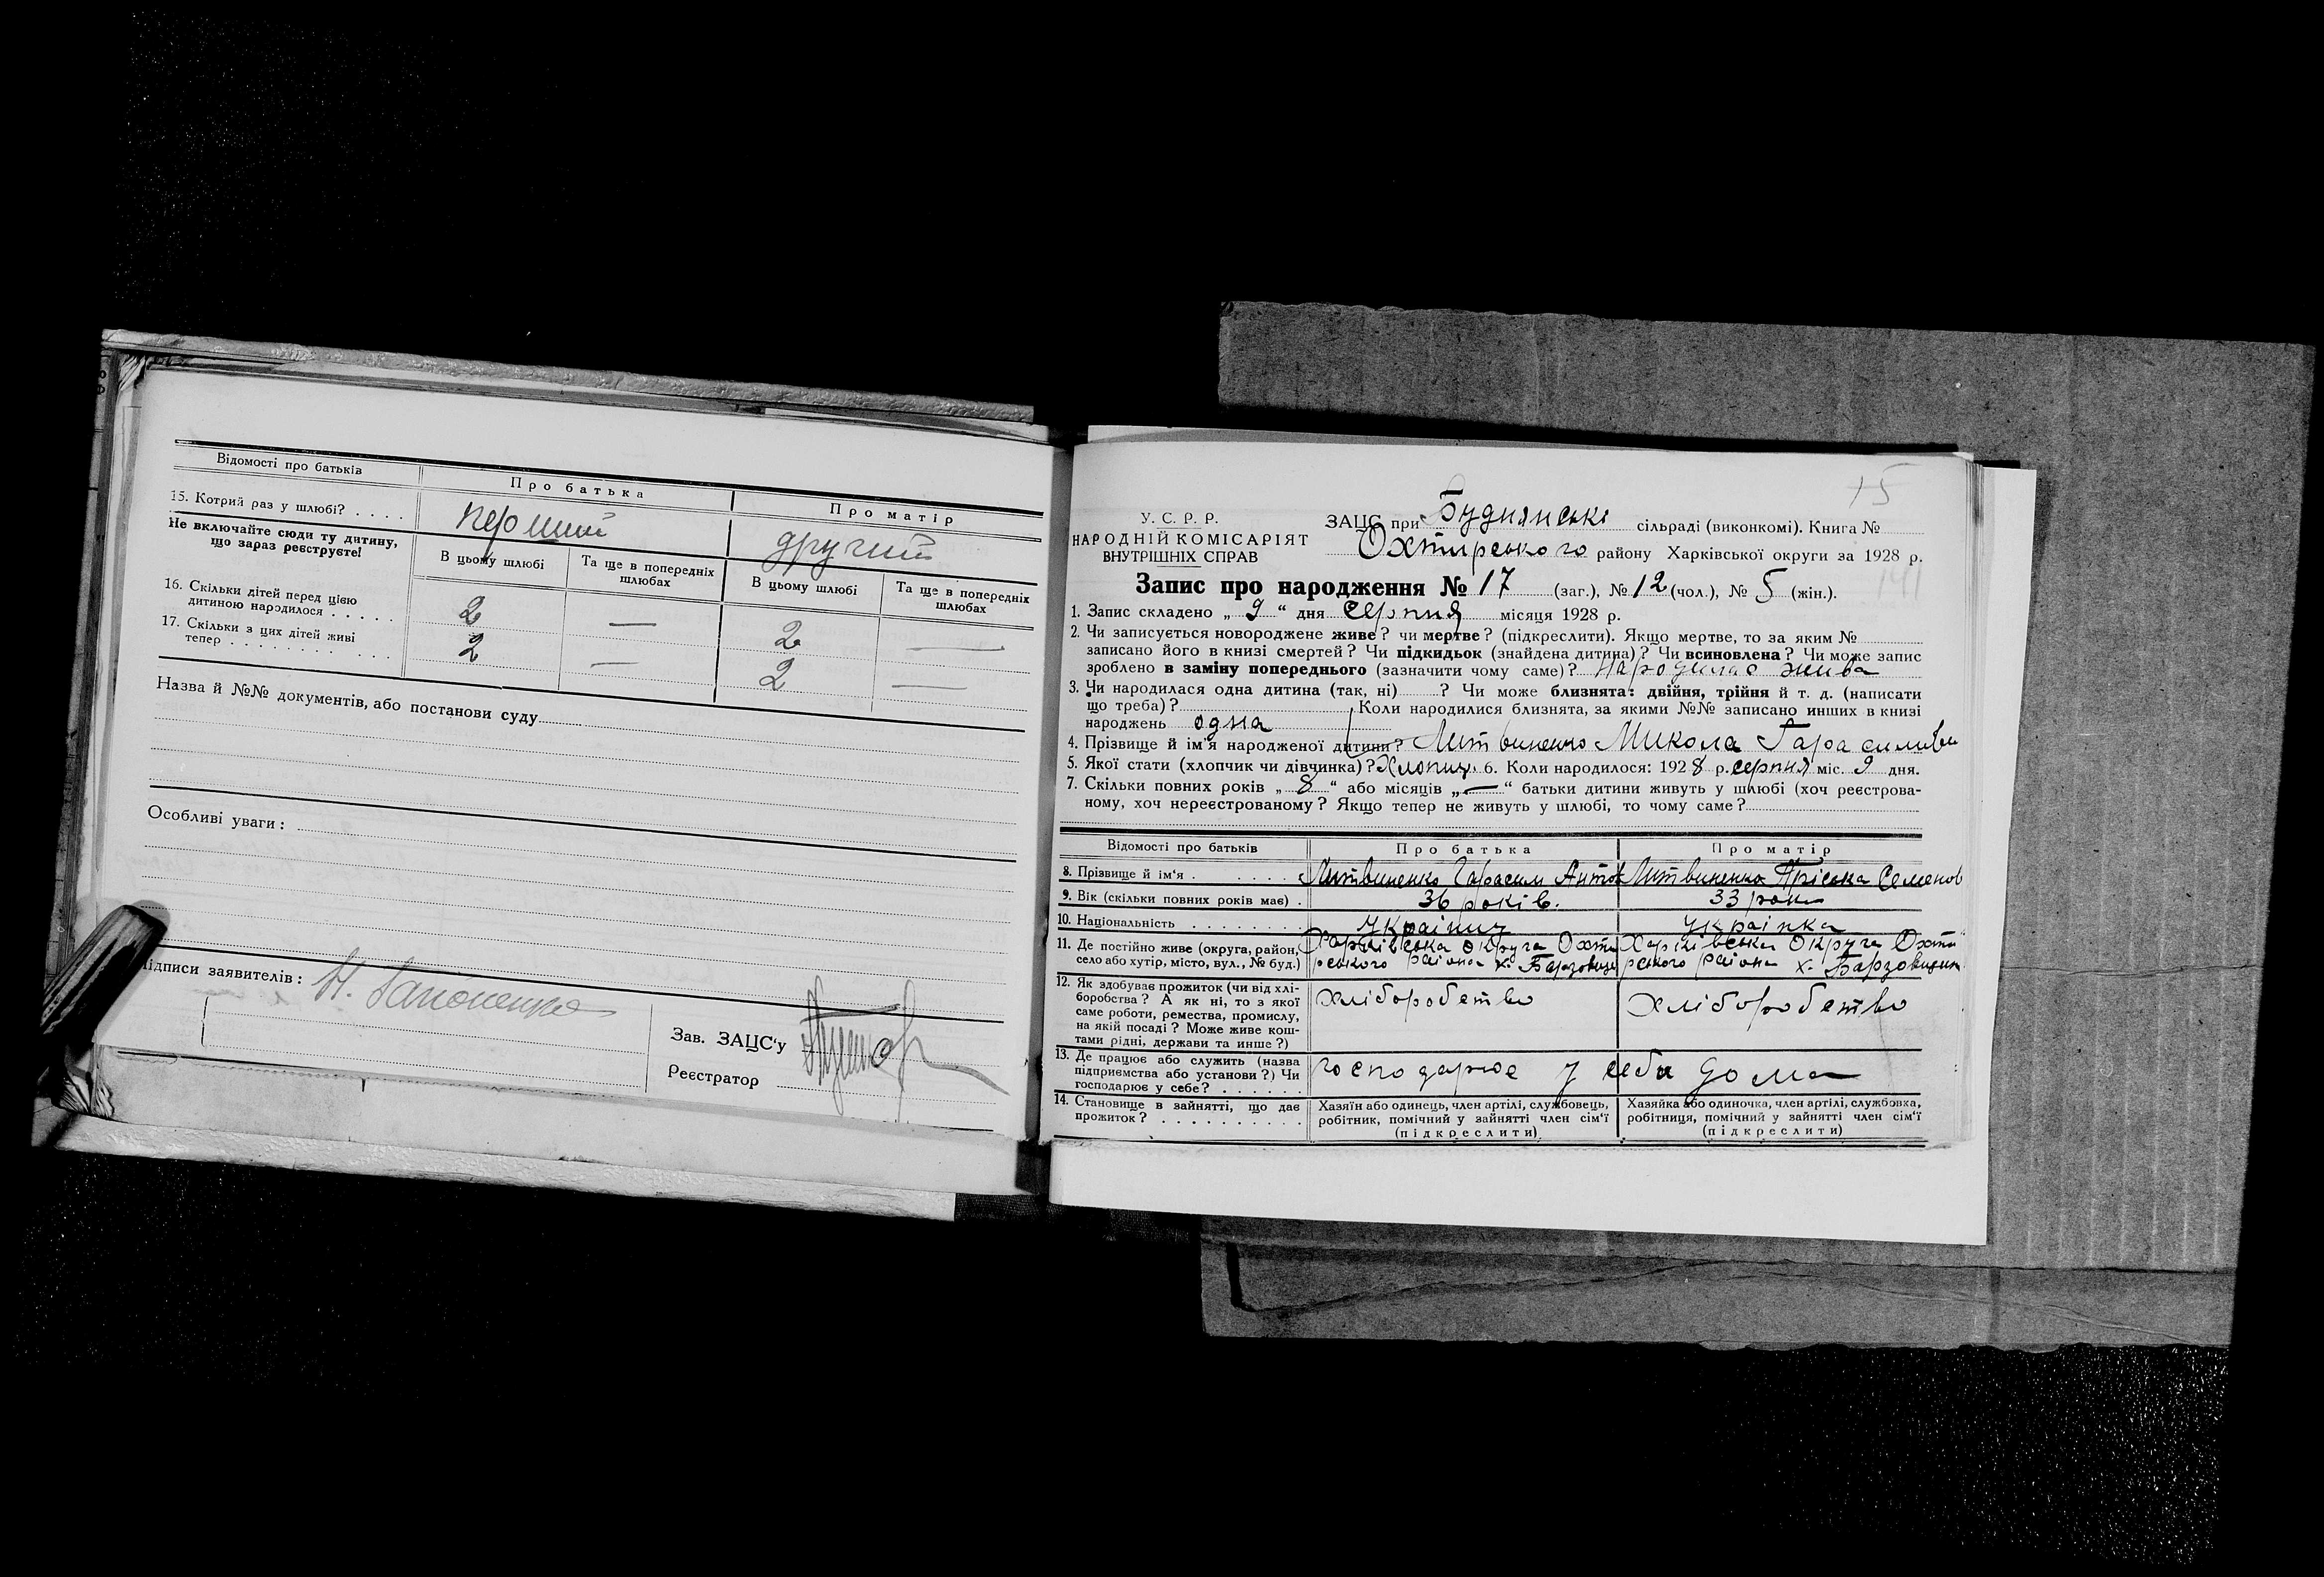 Відомості про батьків
Про батька
Про матір
15. Котрий раз у шлюбі? . . . .
перший
другий
Не включайте сюди ту дитину,
що зараз реєструєте!
В цьому шлюбі
Та ще в попередніх
шлюбах
В цьому шлюбі
Та ще в попередніх
шлюбах
16. Скільки дітей перед цією
дитиною народилося . . . . .
2 — 2 —
17. Скільки з цих дітей живі
тепер . . . . . . . . . . .
2 — 2 —
Назва й №№ документів, або постанови суду
Особливі уваги:
Підписи заявителів:
Зав. ЗАЦС'у
Реєстратор
15
У. С. Р. Р.
НАРОДНІЙ КОМІСАРІЯТ
ВНУТРІШНІХ СПРАВ
ЗАЦС при Буднянські сільраді (виконкомі). Книга №
Охтирського району Харківської округи за 1928 р.
141
Запис про народження № 17 (заг.), № 12 (чол.), № 5 (жін.).
1. Запис складено „ 9 “ дня серпня місяця 1928 р.
2. Чи записується новороджене живе? чи мертве? (підкреслити). Якщо мертве, то за яким №
записано його в книзі смертей? Чи підкидьок (знайдена дитина)? Чи всиновлена? Чи може запис
зроблено в заміну попереднього (зазначити чому саме)? Народилас жива
3. Чи народилася одна дитина (так, ні) ? Чи може близнята: двійня, трійня й т. д. (написати
що треба)? Коли народилися близнята, за якими №№ записано инших в книзі
народжень одна
4. Прізвище й ім'я народженої дитини? Литвиненко Микола Гарасимов
5. Якої стати (хлопчик чи дівчинка)? Хлопиц 6. Коли народилося: 1928 р. серпня міс. 9 дня.
7. Скільки повних років „ 8 “ або місяців „ — “ батьки дитини живуть у шлюбі (хоч реєстрова-
ному, хоч нереєстрованому? Якщо тепер не живуть у шлюбі, то чому саме?
Відомості про батьків
Про батька
Про матір
8. Прізвище й ім'я . . . . . .
Литвиненко Гарасим Антон
Литвиненко Пріська Семенов
9. Вік (скільки повних років має) .
36 років.
33 роки
10. Національність . . . . . . . .
Українц
Українка
11. Де постійно живе (округа, район,
село або хутір, місто, вул., № буд.)
Харківська округа Охти
рського района х.
Харківська округа Охти
рського района х.
12. Як здобуває прожиток (чи від хлі-
боробства? А як ні, то з якої
саме роботи, ремества, промислу,
на якій посаді? Може живе кош-
тами рідні, держави та инше?)
хліборобство
хліборобство
13. Де працює або служить (назва
підприємства або установи?) Чи
господарює у себе? . . . . . .
господарює у себи дома
14. Становище в зайнятті, що дає
прожиток? . . . . . . . . . . .
Хазяїн або одинець, член артілі, службовець,
робітник, помічний у зайнятті член сім'ї
(підкреслити)
Хазяйка або одиночка, член артілі, службовка,
робітниця, помічний у зайнятті член сім'ї
(підкреслити)